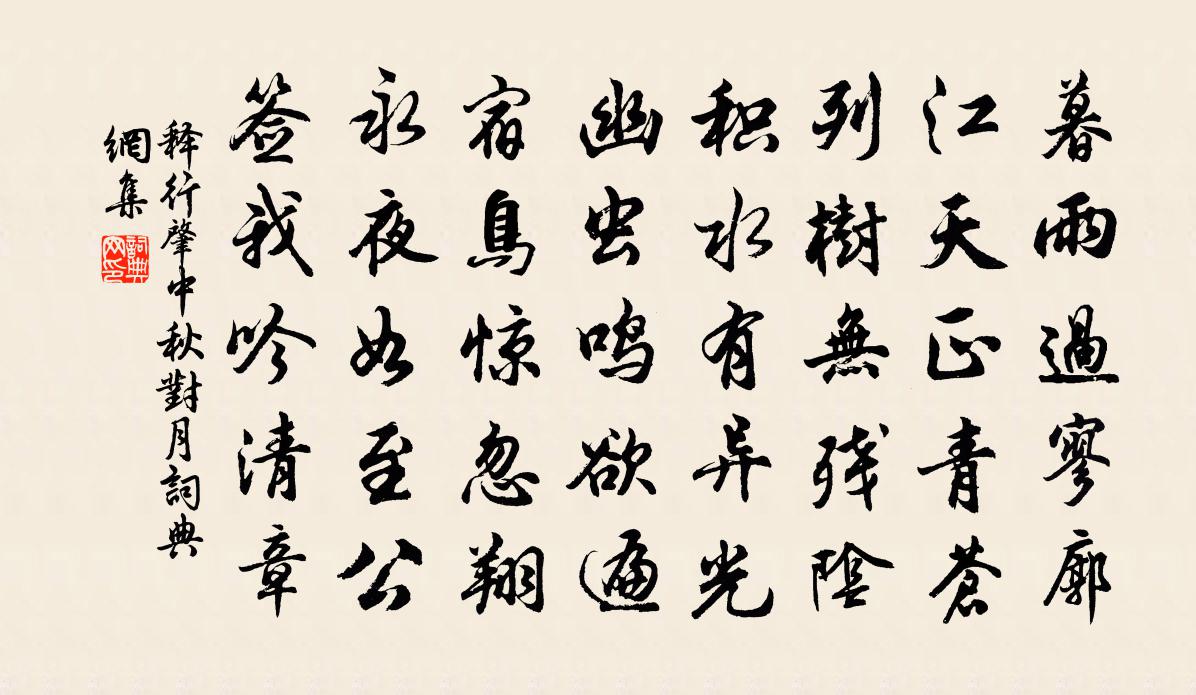 暮雨過寥廓
江天正青蒼
列樹無残陰
积水有异光
幽虫鸣欲遍
宿鳥惊忽翔
永夜如至公
签我吟清章
释行肇中秋對月詞典
網集
詞典
网印